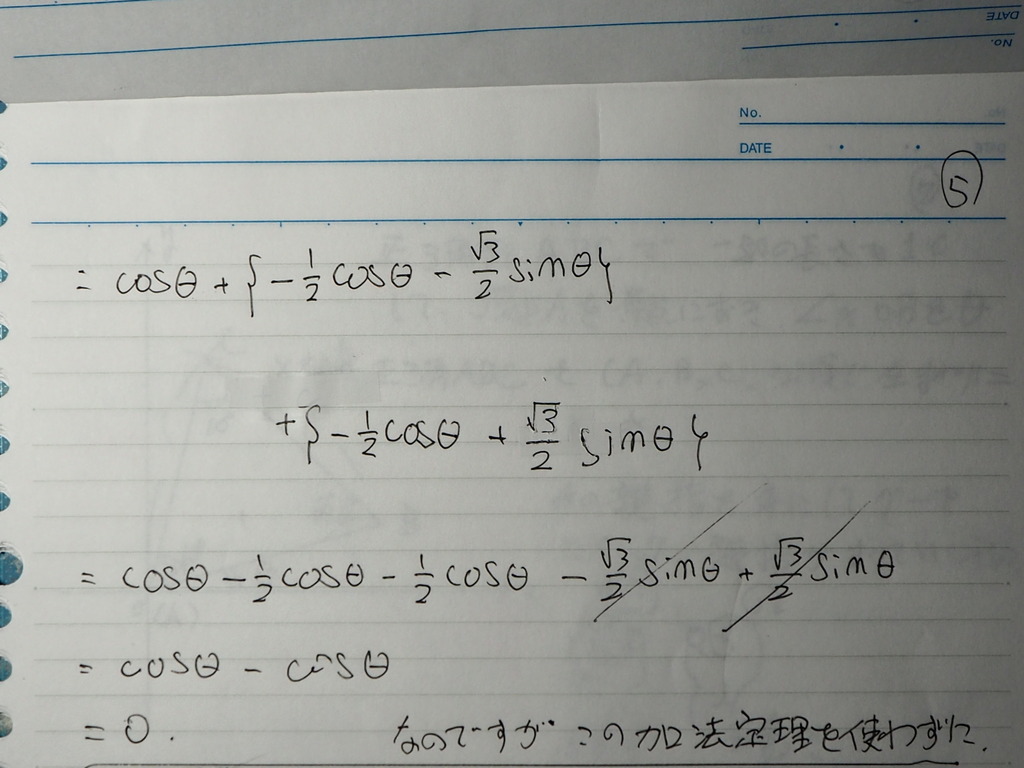 DATE
No.
No.
DATE
⑤
= cosθ + { -1/2 cosθ - √3/2 sinθ }
+ { -1/2 cosθ + √3/2 sinθ }
= cosθ - 1/2 cosθ - 1/2 cosθ - √3/2 sinθ + √3/2 sinθ
= cosθ - cosθ
= 0. なのですが この加法定理を使わずに、